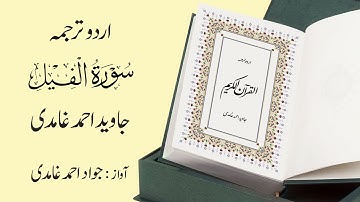 اردو ترجمہ
سُوْرَةُ الْفِيْلِ
جاوید احمد غامدی
آواز : جواد احمد غامدی
اردو ترجمہ
القرآن الکریم
جاوید احمد غامدی